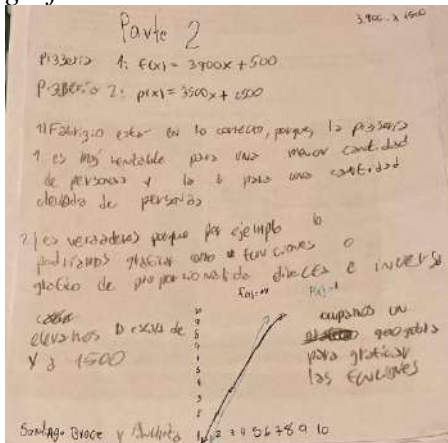 Parte 2
3.900 . x 1500
Pizzeria 1: f(x) = 3900x + 500
Pizzeria 2: p(x) = 3500x + 2500
1) Fabrizio esta en lo correcto, porque, la pizzeria
1 es más rentable para una menor cantidad
de personas y la 2 para una cantidad
elevada de personas
2) es verdadero porque por ejemplo lo
podriamos graficar como funciones o
grafico de proporcionalida directa e inversa
elevamos la escala de
Y a 1500
ocupamos un
geogebra
para graficar
las funciones
1 2 3 4 5 6 7 8 9 10
Santiago Broce y